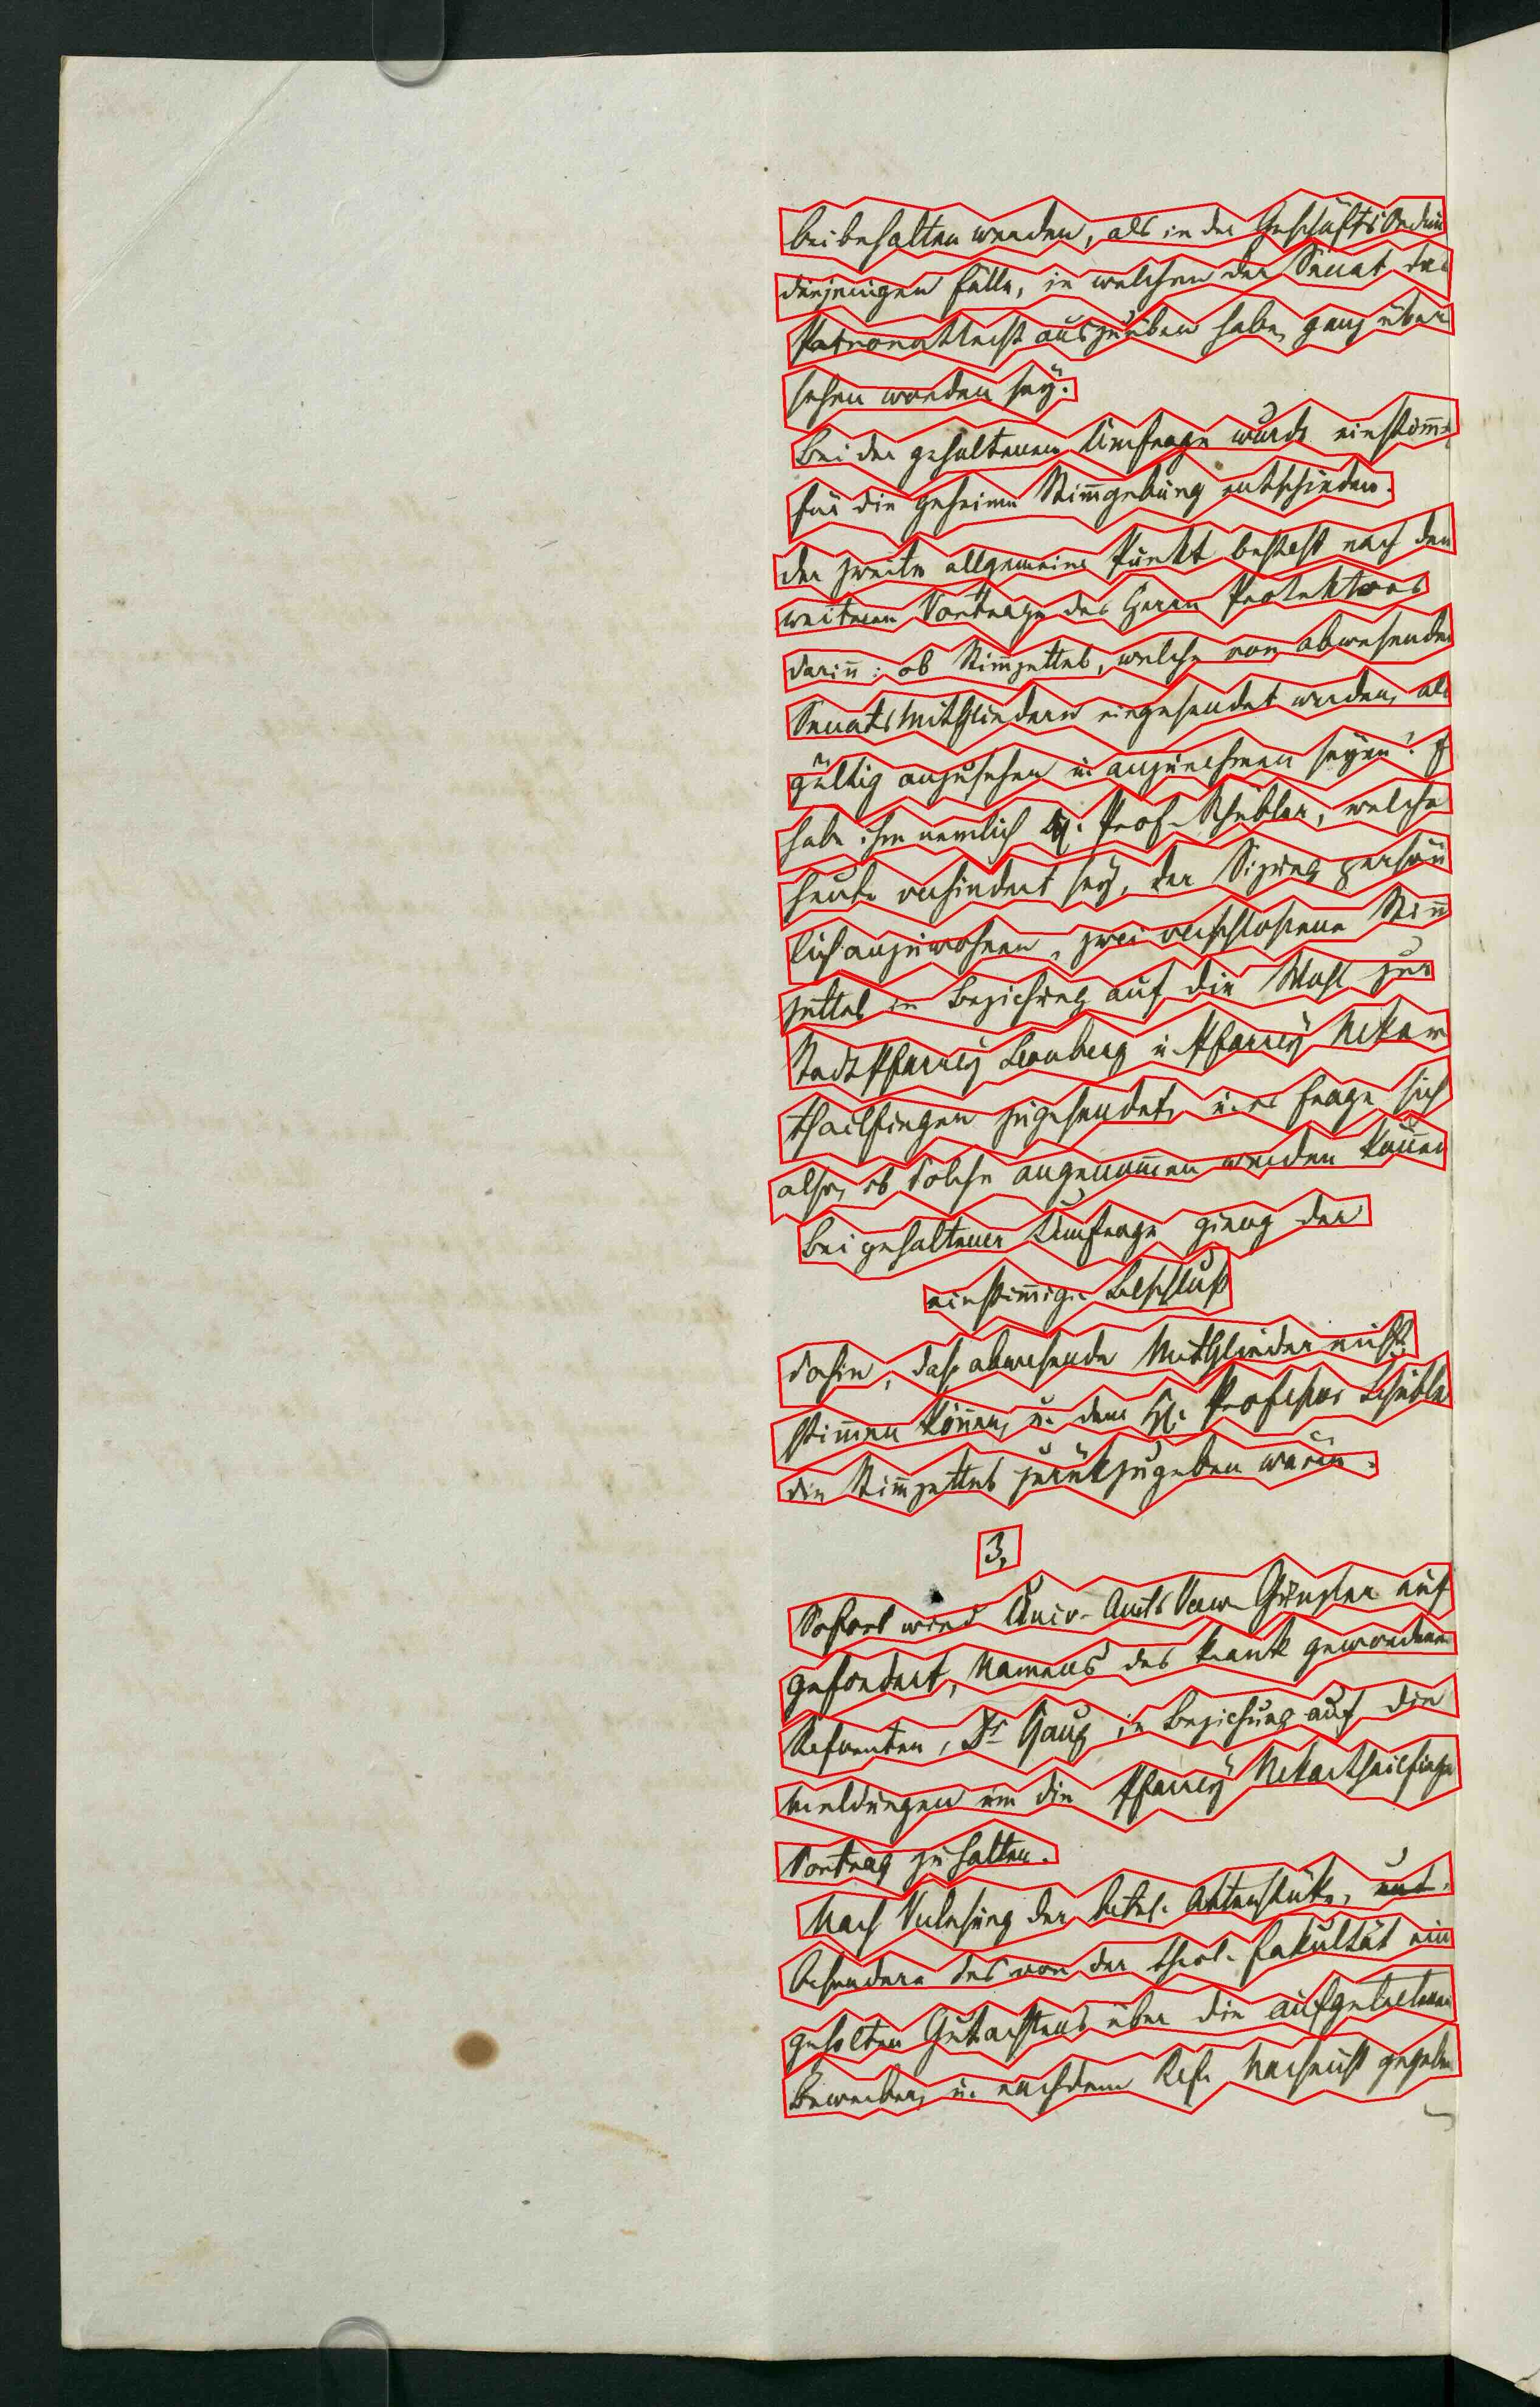 beibehalten werden, als in der GeschäftsOrdnu
diejenigen Fälle, in welchen der Senat das
Patronatrecht auszuüben habe, ganz über
sehen worden sey.
Bei der gehaltenen Umfrage wurde einstimm
für die geheime Stimmgebung entschieden.
der zweite allgemeine Punkt besteht nach dem
weiteren Vortrage des Herrn Prorektors
darinn: ob Stimmzettel, welche von abwesenden
SenatsMitgliedern eingesendet werden, als
gültig anzusehen u. anzunehmen seyen? Es
habe ihm nemlich H. Prof. Schübler, welcher
heute verhindert sey, der Sizung persön
lich anzuwohnen, zwei verschlossene Stimm
zettel in Beziehung auf die Wahl zur
StadtPfarrey Leonberg u. Pfarrey Nekar
thailfingen zugesendet, u. es frage sich
also, ob solche angenommen werden können
Bei gehaltener Umfrage gieng der
einstimmige Beschluß
dahin, daß abwesende Mitglieder nicht
stimmen können, u. dem H. Professor Schübler
die Stimmzettel zurükzugeben wären.
3,
Sofort wird Univ. Amts Verw. auf
gefordert, Namens des krank gewordenen
Referenten, Dr Gaup in Beziehung auf die
Meldungen um die Pfarrey Nekarthailfingen
Vortrag zu halten.
Nach Verlesung der betref. Aktenstüke,
besondere des von der theol. Fakultät ein
geholten Gutachtens über die aufgetretenen
Bewerber, u. nachdem Ref. Nachricht gegeben